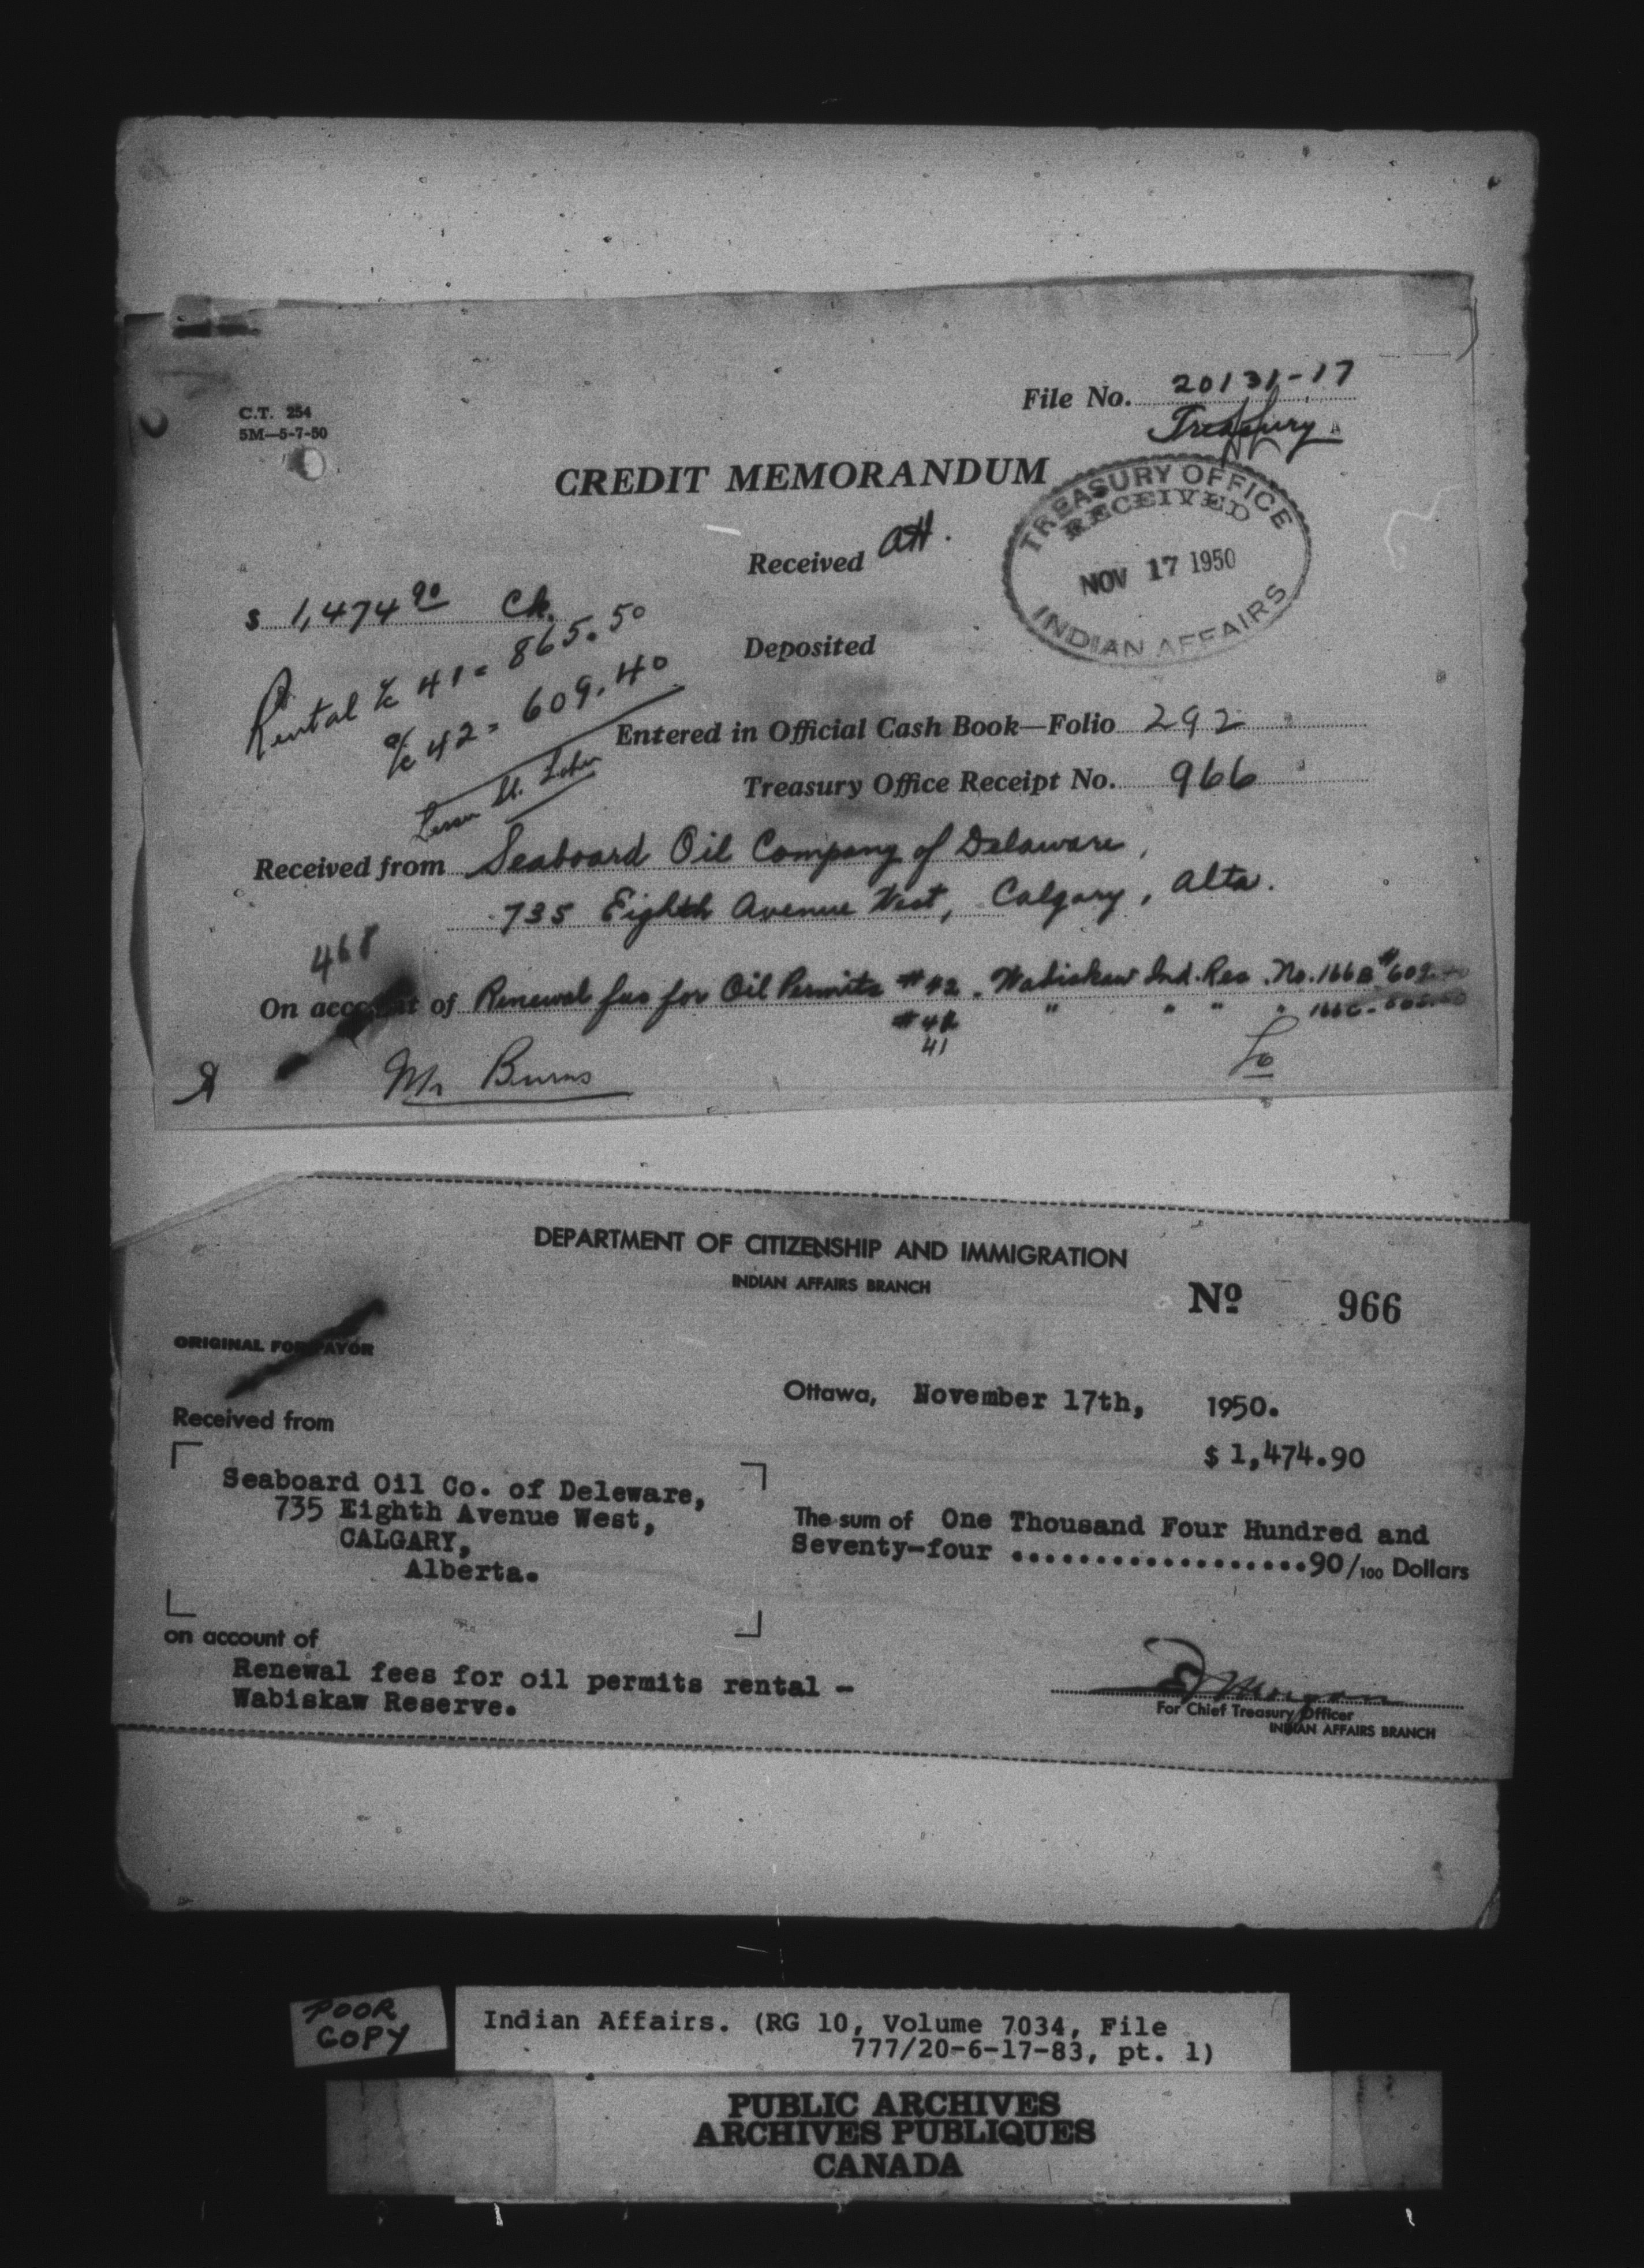 C.T. 254
5M—5-7-50
File No. 20131-17
Treasury
CREDIT MEMORANDUM
TREASURY OFFICE
RECEIVED
NOV 17 1950
INDIAN AFFAIRS
Received att.
$ 1,474 90 Ck.
Deposited
Rental a/c 41 = 865.50
a/c 42 = 609.40
Entered in Official Cash Book—Folio 292
Lesser Sl.
Treasury Office Receipt No. 966
Received from Seaboard Oil Company of Delaware,
735 Eighth Avenue West, Calgary, Alta.
468
On account of Renewal fees for Oil Permits #42. Wabiskaw Ind. Res. No. 166B #609.40
" " " " 166C -
41
Mr Burns
DEPARTMENT OF CITIZENSHIP AND IMMIGRATION
INDIAN AFFAIRS BRANCH
Nº 966
ORIGINAL FOR PAYOR
Ottawa, November 17th, 1950.
Received from
$ 1,474.90
Seaboard Oil Co. of Deleware,
735 Eighth Avenue West,
CALGARY,
Alberta.
The sum of One Thousand Four Hundred and
Seventy-four ..................90/100 Dollars
on account of
Renewal fees for oil permits rental -
Wabiskaw Reserve.
Morgan
For Chief Treasury Officer
INDIAN AFFAIRS BRANCH
POOR
COPY
Indian Affairs. (RG 10, Volume 7034, File
777/20-6-17-83, pt. 1)
PUBLIC ARCHIVES
ARCHIVES PUBLIQUES
CANADA